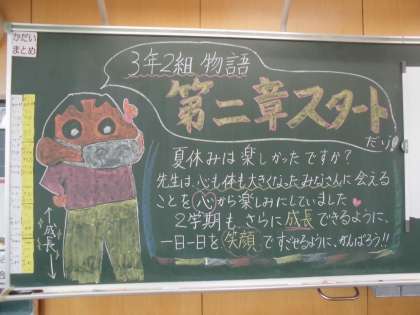 かだい
まとめ
3年2組 物語
第二章スタート
だゾ!
夏休みは楽しかったですか?
先生は、心も体も大きくなったみなさんに会える
ことを心から楽しみにしていました
2学期も、さらに成長できるように、
一日一日を笑顔ですごせるように、がんばろう!!
成長